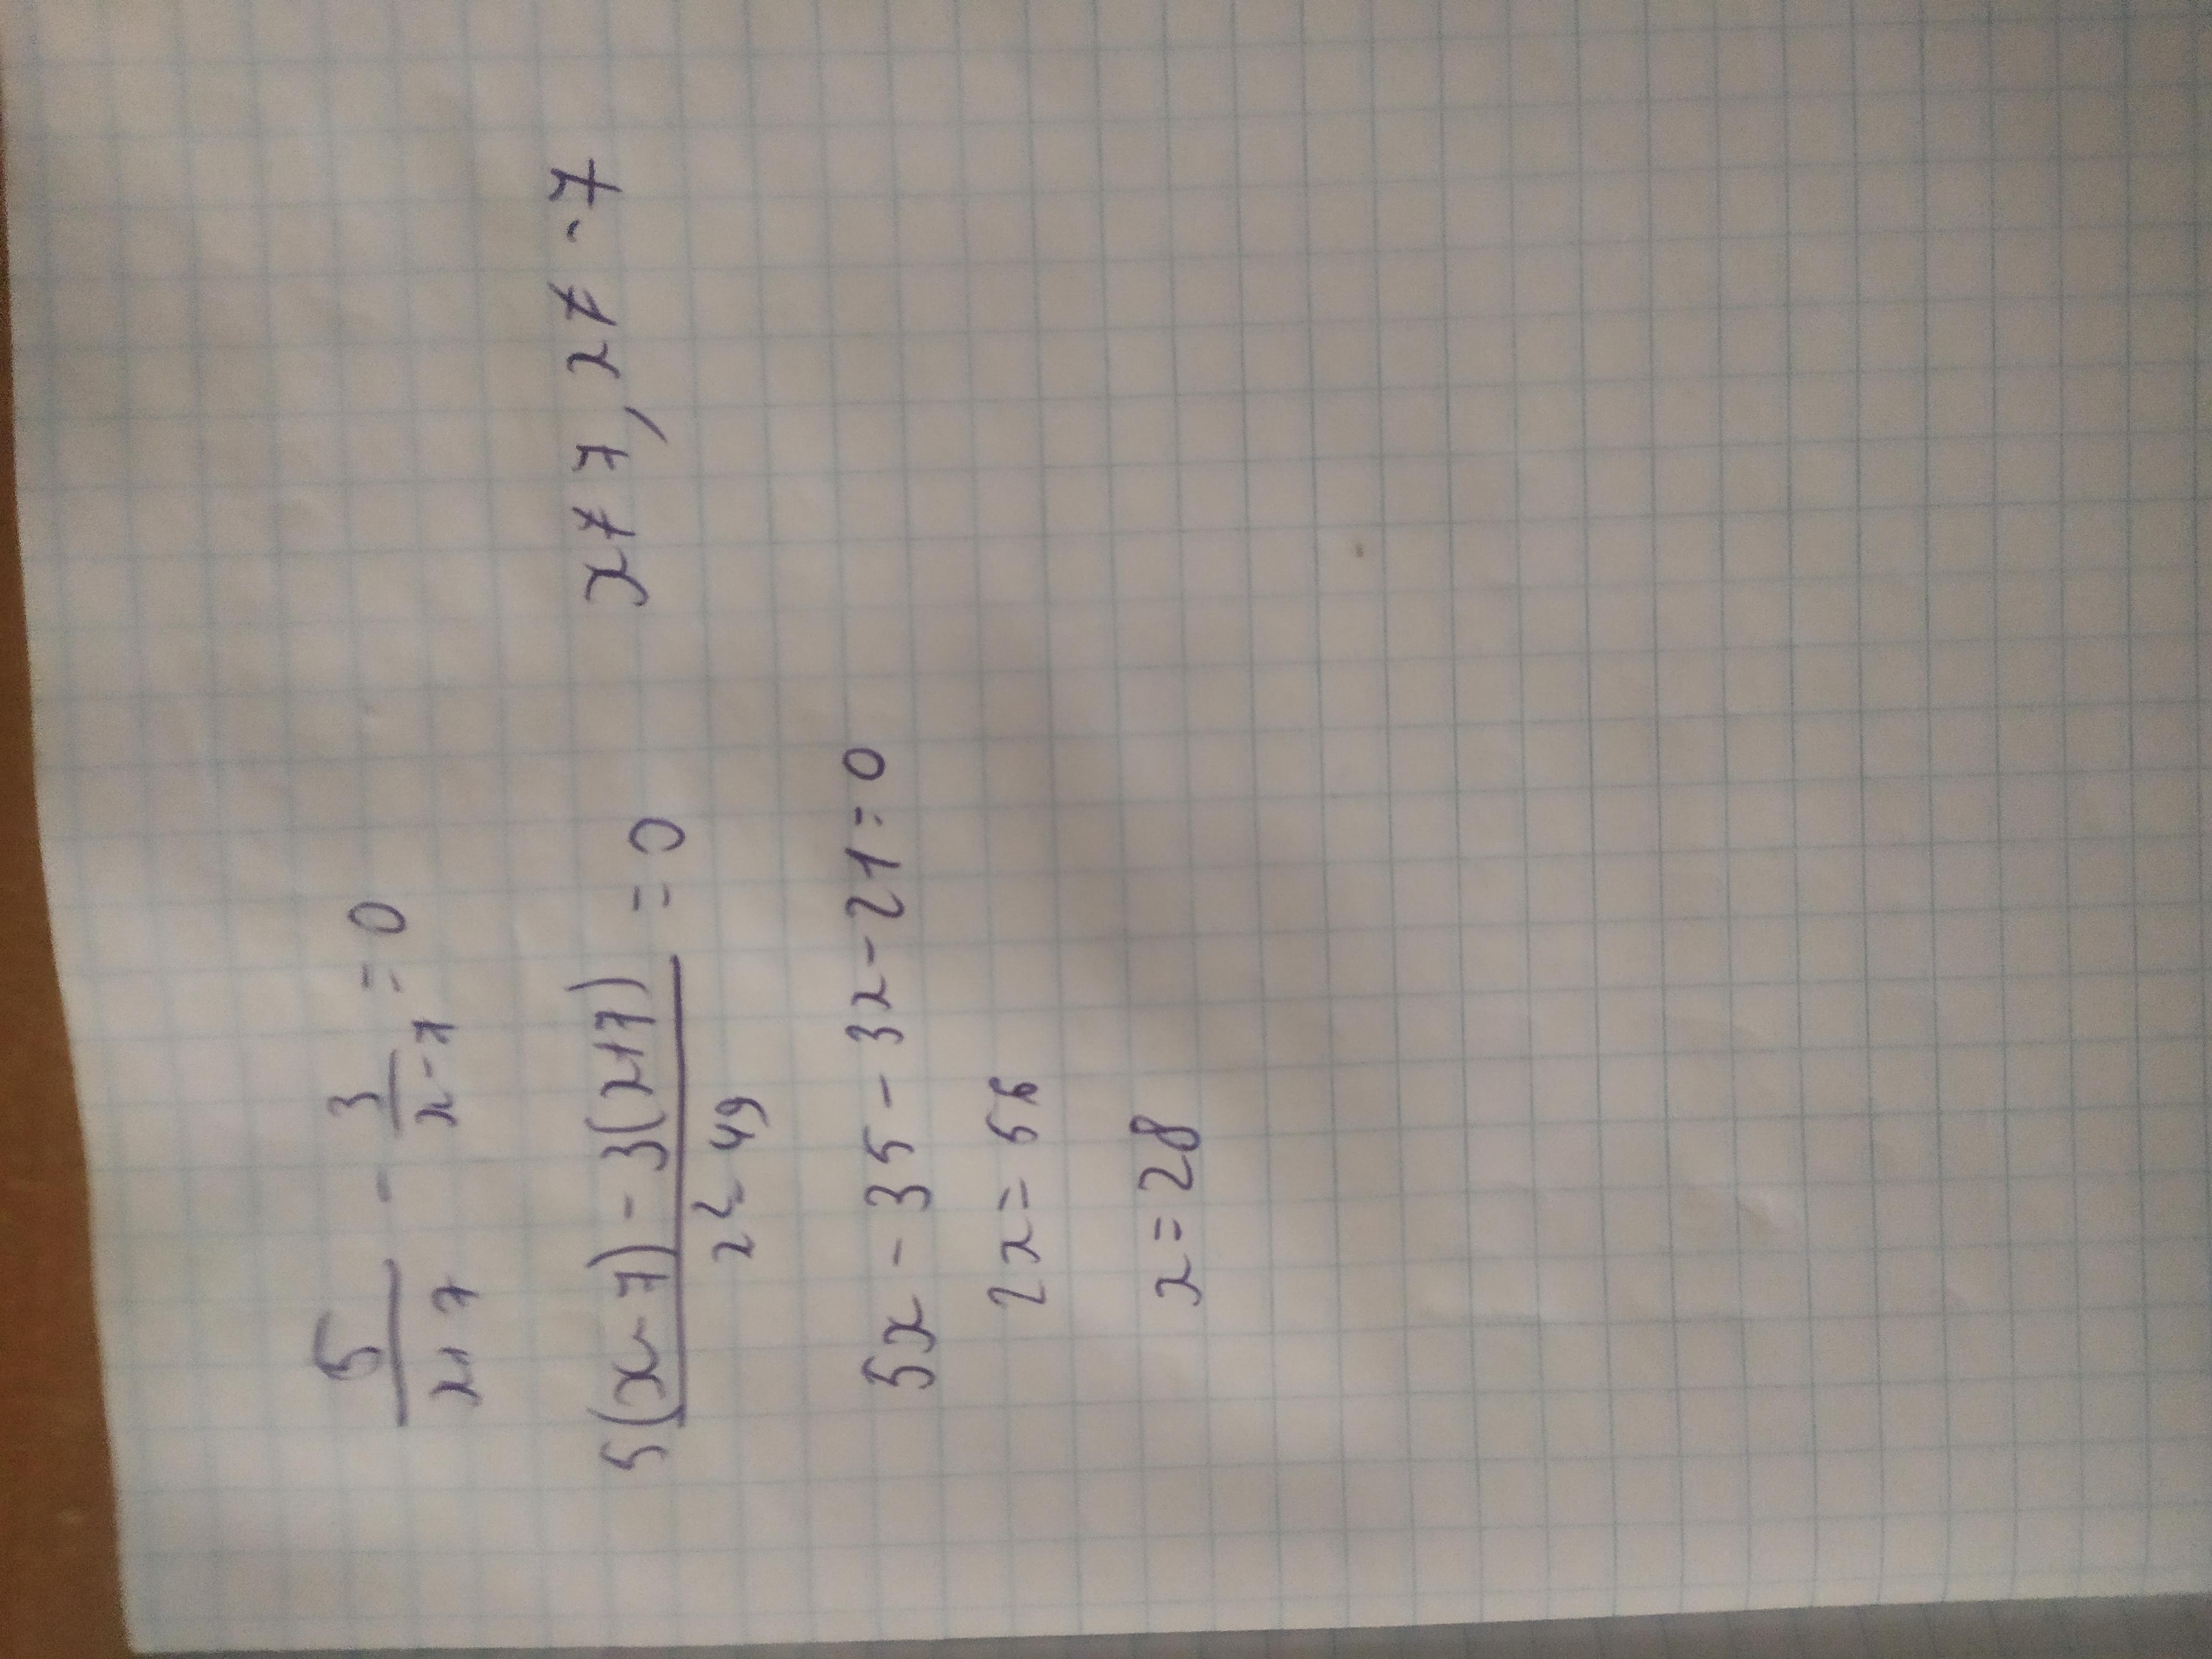 5/(x+7) - 3/(x-7) = 0
(5(x-7) - 3(x+7))/(x²-49) = 0 x≠7, x≠-7
5x - 35 - 3x - 21 = 0
2x = 56
x = 28